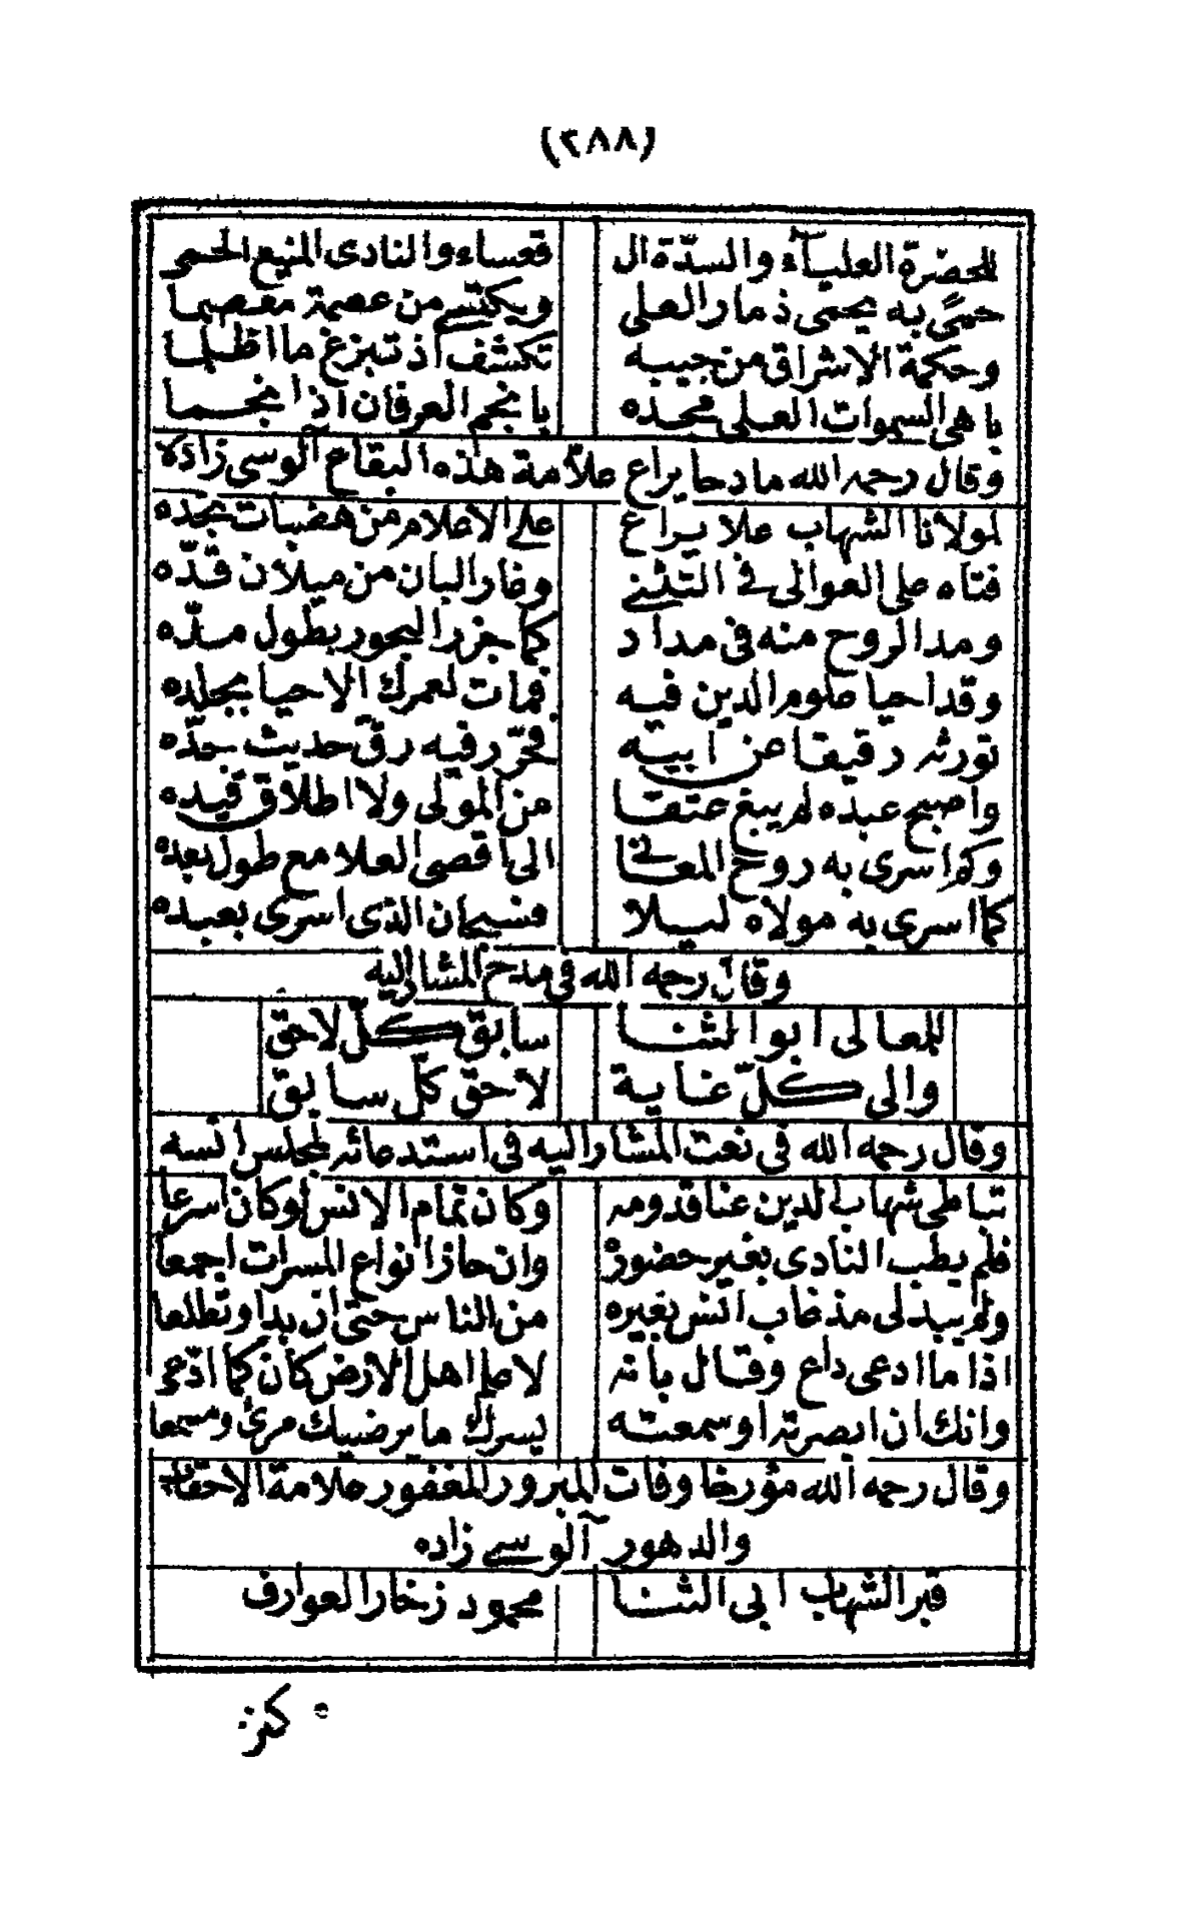 (٢٨٨)
للحضرة العلياء والسدّة ال قعساء والنادى المنيع الحمى
حمىً به يحمى ذمار العلى ويكتسى من عصمة معصما
وحكمة الاشراق من جيبه تكشف اذ تبزغ ما اظلما
باهى السموات العلى مجده يا نجم العرفان اذ انجما
وقال رحمه الله مادحا يراع علاّمة هذه البقاع آلوسى زاده
لمولانا الشهاب علا يراع على الاعلام من هضبات مجده
فتاه على العوالى فى التثنى وغار البان من ميلان قدّه
ومد الروح منه فى مداد كما جزر البحور بطول مدّه
وقد احيا علوم الدين فيه فمات لعمرك الاحيا بجلده
تورثه رقيقا عن ابيه فحرّر فيه رقّ حديث جدّه
واصبح عبده لم يبغ عتقا من المولى ولا اطلاق قيده
وكم اسرى به روح المعانى الى اقصى العلا مع طول بعده
كما اسرى به مولاه ليلا فسبحان الذى اسرى بعبده
وقال رحمه الله فى مدح المشار اليه
للمعالى ابو الثنا سابق كلّ لاحق
والى كلّ غاية لاحق كلّ سابق
وقال رحمه الله فى نعت المشار اليه فى استدعائه لمجلس انسه
تباطى شهاب الدين عنا قدومه وكان تمام الانس لو كان اسرعا
فلم يطب النادى بغير حضوره وان حاز انواع المسرات اجمعا
ولم يبد لى مذ غاب انس بغيره من الناس حتى ان بدا وتطلعا
اذا ما ادعى داع وقال بانه لاعلم اهل الارض كان كما ادّعى
وانك ان ابصرته او سمعته ليسرك ما يرضيك مرئى ومسمعا
وقال رحمه الله مؤرخا وفات المبرور المغفور علامة الاحقاب
والدهور آلوسى زاده
قبر الشهاب ابى الثنا محمود زخار العوارف
كنز